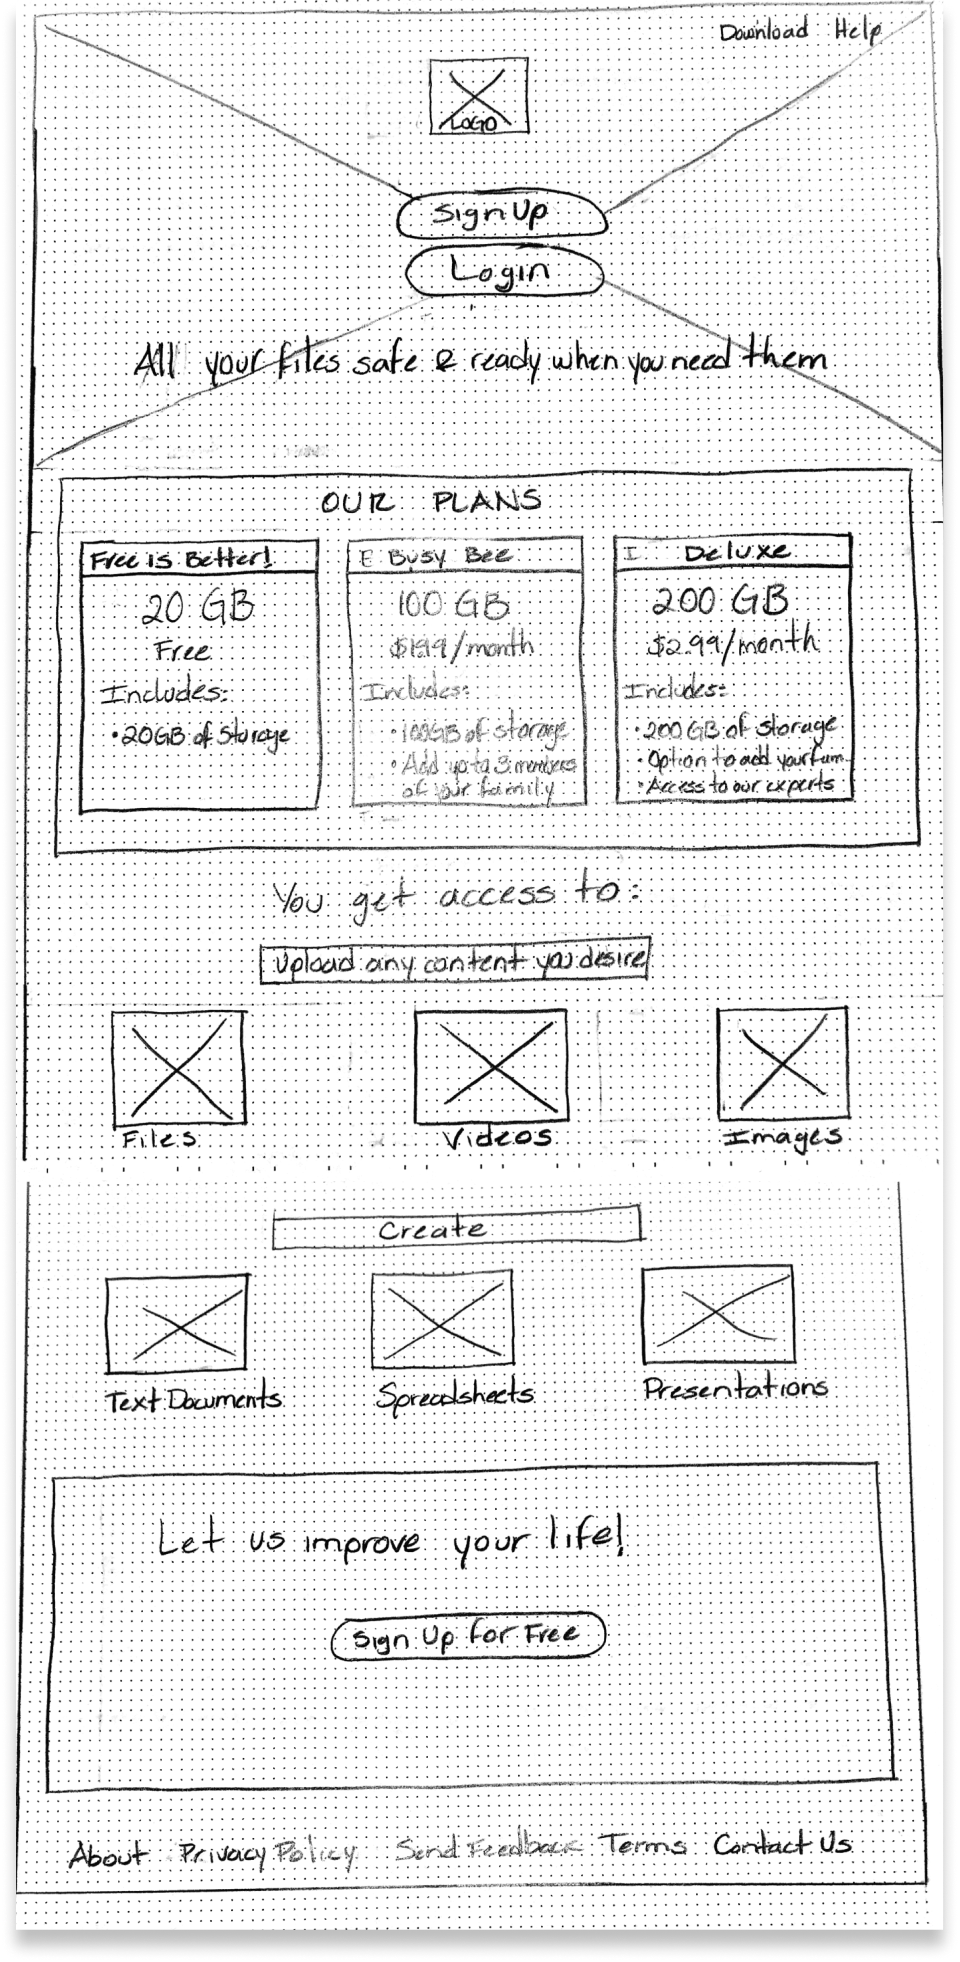 Download Help
LOGO
Sign Up
Login
All your files safe & ready when you need them
OUR PLANS
Free is Better!
20 GB
Free
Includes:
• 20GB of Storage
Busy Bee
100 GB
/month
Includes:
• 100GB of storage
• Add up to 3 members
of your family
Deluxe
200 GB
$2.99/month
Includes:
• 200 GB of storage
• Option to add your fam.
• Access to our experts
You get access to:
Upload any content you desire
Files Videos Images
Create
Text Documents Spreadsheets Presentations
Let us improve your life!
Sign Up for Free
About Privacy Policy Send Feedback Terms Contact Us